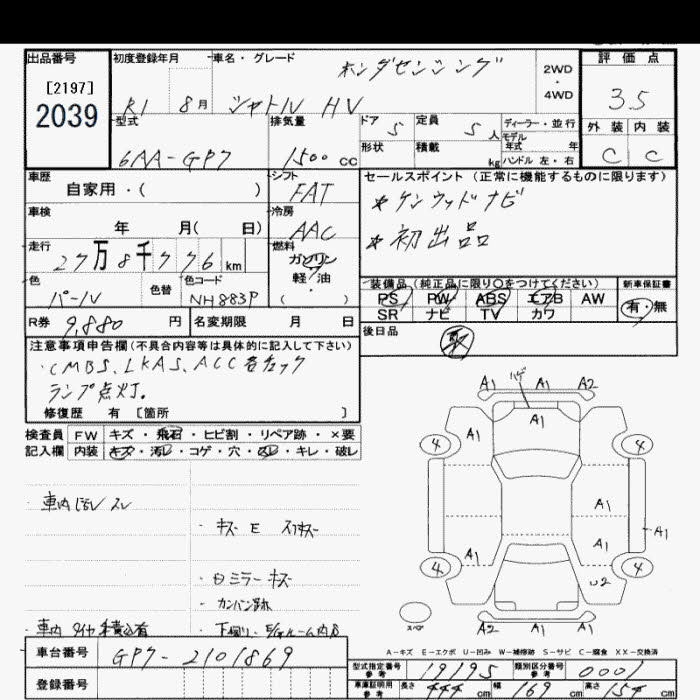 出品番号 初度登録年月 車名・グレード ホンダセンシング 2WD・4WD 評価点
[2197]
2039 R1 8月 シャトル HV 3.5
型式 排気量 ドア 5 定員 5人 ディーラー・並行 外装 内装
モデル年式 年
6AA-GP7 1500cc 形状 積載 kg ハンドル 左・右 C C
車歴 シフト セールスポイント (正常に機能するものに限ります)
自家用・( ) FAT ★ケンウッドナビ
車検 冷房 ★初出品
年 月( 日) AAC
走行 燃料
27万8千776km ガソリン 軽・油 ( )
装備品 (純正品に限り○をつけてください) 新車保証書
色 色替 色コード PS PW ABS エアB AW 有・無
パール NH883P SR ナビ TV カワ
R券 9,880円 名変期限 月 日 後日品 取
注意事項申告欄(不具合内容等は具体的に記入して下さい)
・CMBS、LKAS、ACC各チェック
ランプ点灯。
修復歴 有 [箇所 ]
検査員 FW キズ・飛石・ヒビ割・リペア跡・×要
記入欄 内装 キズ・汚レ・コゲ・穴・スレ・キレ・破レ
ハゲ
A1 A1 A2
A1 A1
4 4
・車内 スレ A1
・キズ E スリキズ A1
A1 A1
4 4
・ミラーキズ U2
・カンバン跡
スペア
・車内 タイヤ積込有 ・下廻り、E/gルーム内 A2 A1 A1
A-キズ E-エクボ U-凹み W-補修跡 S-サビ C-腐食 XX-交換済
車台番号 GP7-2101869 型式指定番号 参考 19195 類別区分番号 参考 0001
登録番号 車庫証明用 参考 長さ 444cm 幅 169cm 高さ 154cm